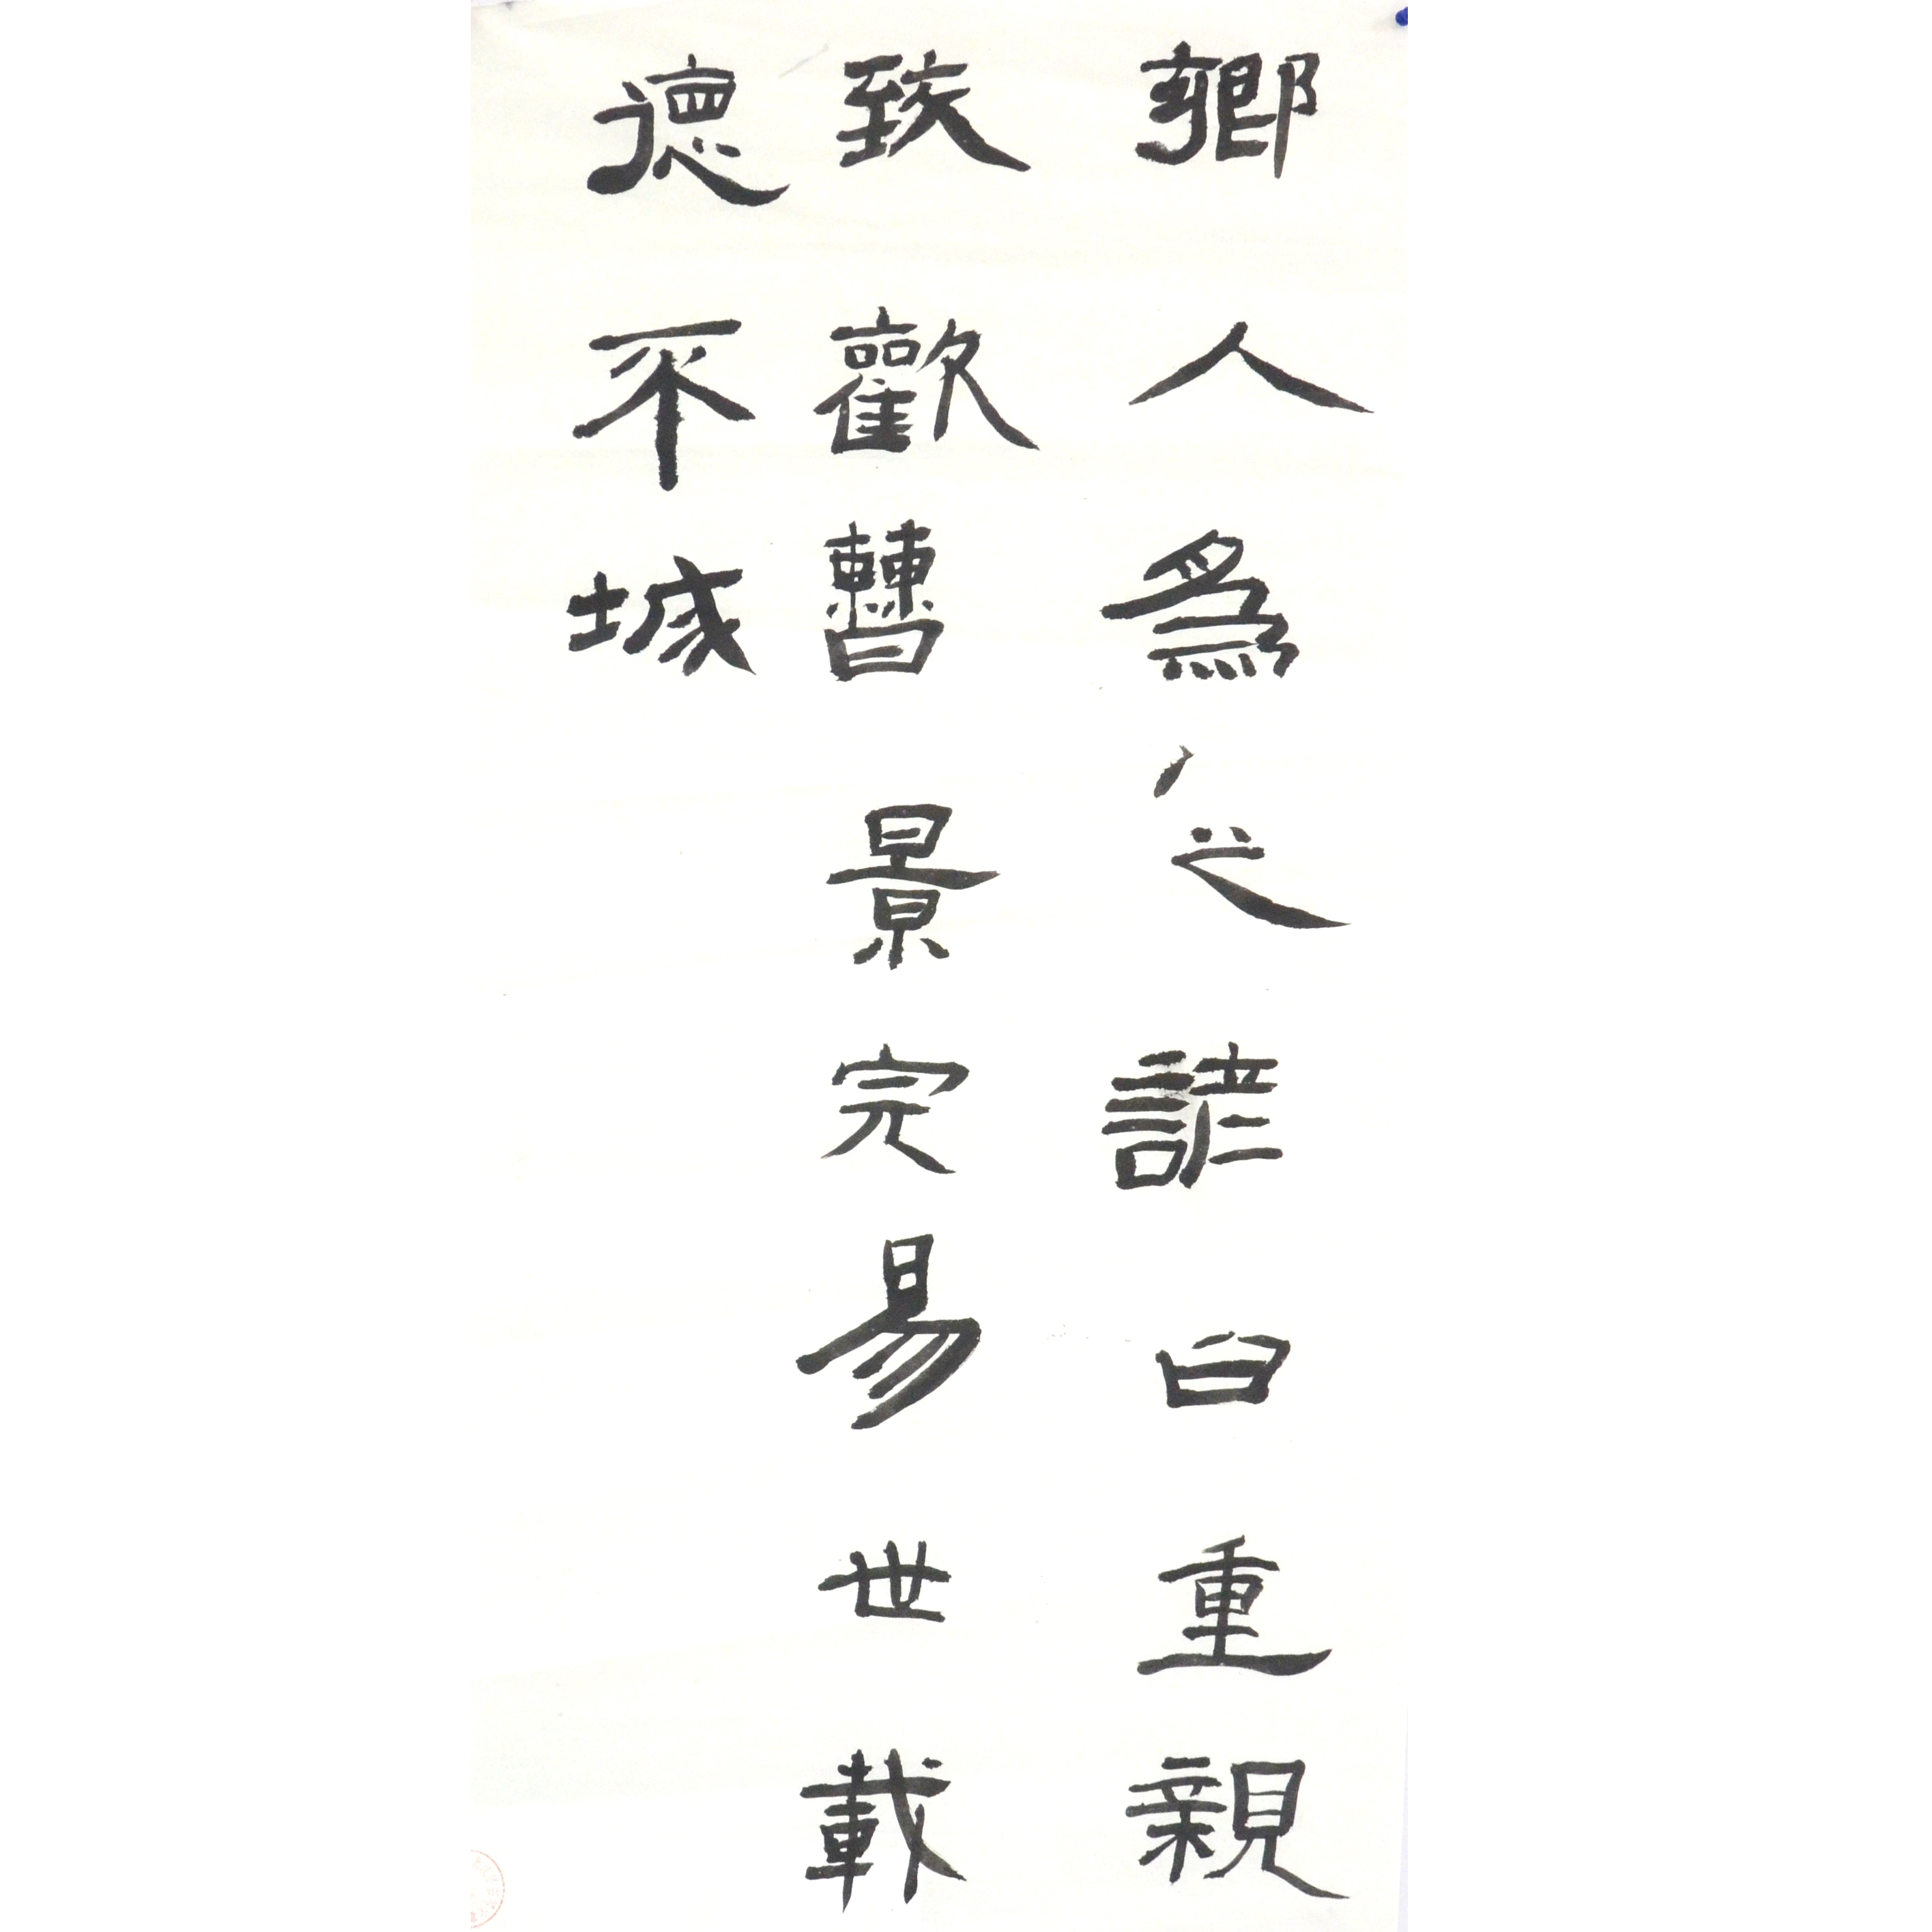 鄉人為之諺曰重親
致歡曹景完易世載
德不城